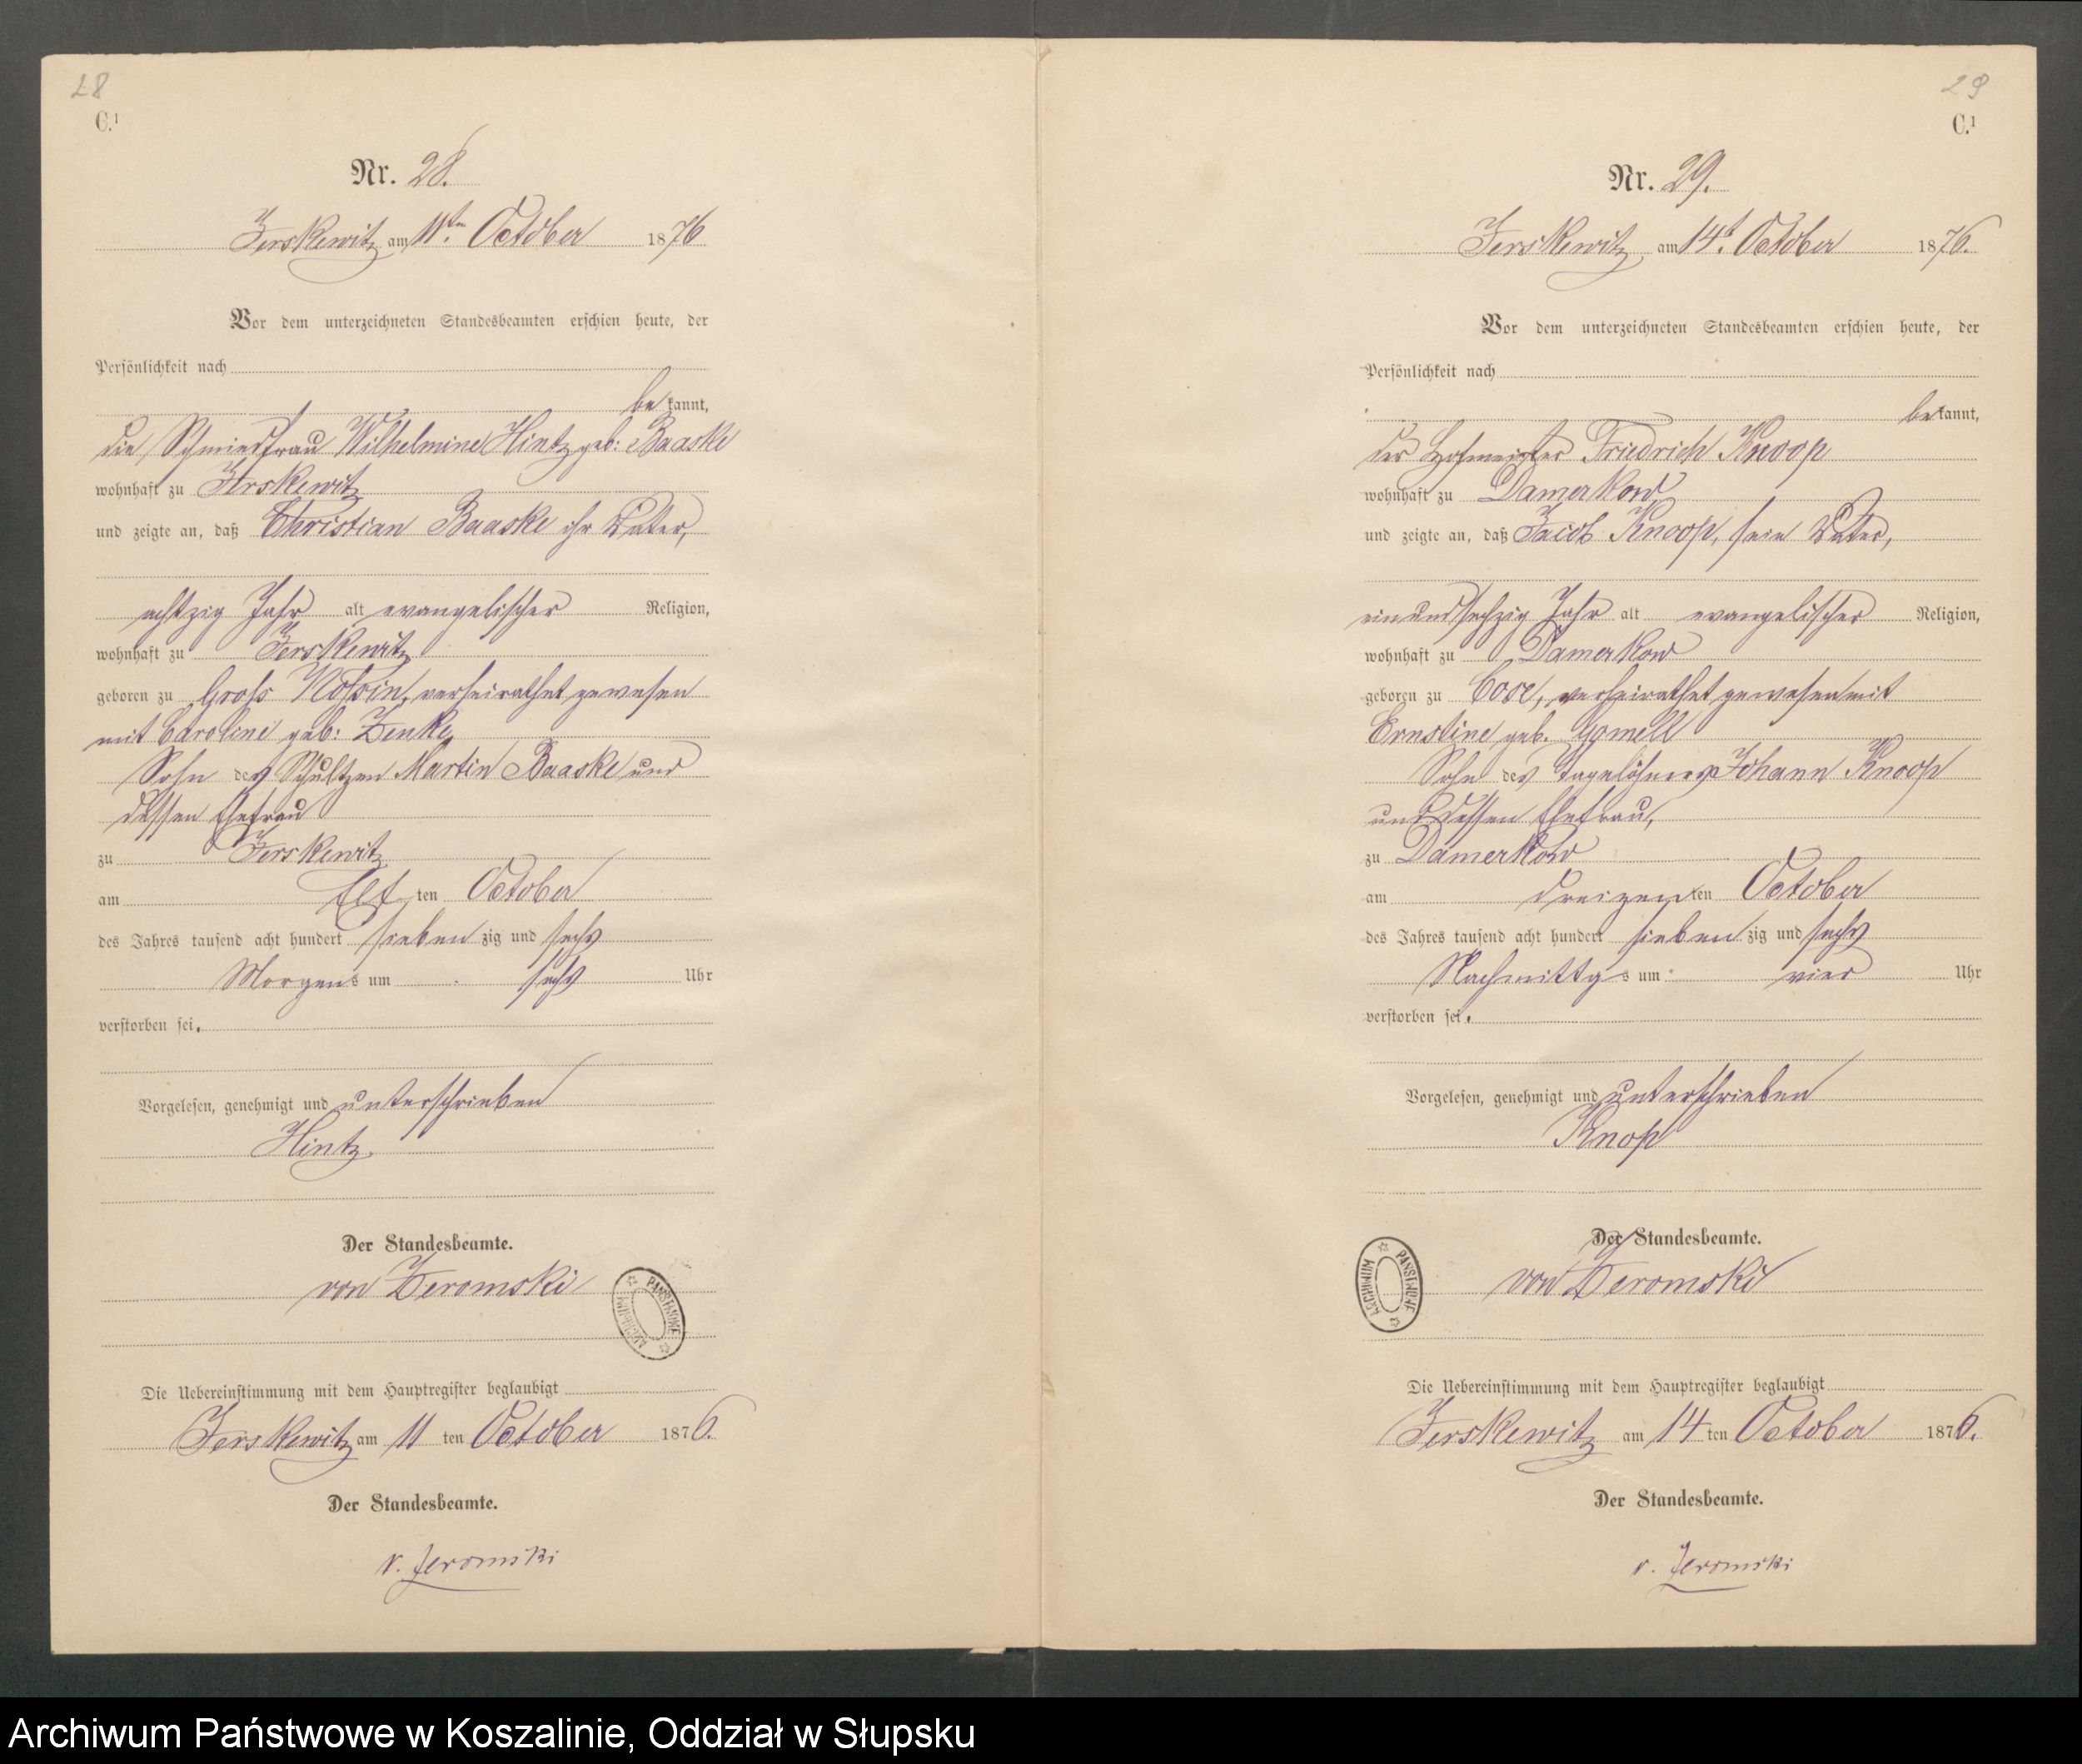 28
C.¹
Nr. 28.
Jerskewitz am 11ten October 1876
Vor dem unterzeichneten Standesbeamten erschien heute, der
Persönlichkeit nach
bekannt,
die Schmiedfrau Wilhelmine Hintz geb: Baaske
wohnhaft zu Jerskewitz
und zeigte an, daß Christian Baaske ihr Vater,
achtzig Jahr alt evangelischer Religion,
wohnhaft zu Jerskewitz
geboren zu Groß Nossin, verheirathet gewesen
mit Caroline geb: Zenke
Sohn des Schultzen Martin Baaske und
dessen Ehefrau
zu Jerskewitz
am Elf ten October
des Jahres tausend acht hundert sieben zig und sechs
Morgens um sechs Uhr
verstorben sei.
Vorgelesen, genehmigt und unterschrieben
Hintz.
Der Standesbeamte.
von Zeromski
ARCHIWUM PAŃSTWOWE
Die Uebereinstimmung mit dem Hauptregister beglaubigt
Jerskewitz am 11 ten October 1876.
Der Standesbeamte.
v. Zeromski
29
C.¹
Nr. 29.
Jerskewitz am 14t. October 1876.
Vor dem unterzeichneten Standesbeamten erschien heute, der
Persönlichkeit nach
bekannt,
der Hofmeister Friedrich Knoop
wohnhaft zu Damerkow
und zeigte an, daß Jacob Knoop, sein Vater,
einundsechzig Jahr alt evangelischer Religion,
wohnhaft zu Damerkow
geboren zu Cose, verheirathet gewesen mit
Ernstine geb. Gomell
Sohn des Tagelöhners Johann Knoop
und dessen Ehefrau,
zu Damerkow
am dreizehnten October
des Jahres tausend acht hundert sieben zig und sechs
Nachmittgs um vier Uhr
verstorben sei.
Vorgelesen, genehmigt und unterschrieben
Knop
Der Standesbeamte.
von Zeromski
ARCHIWUM PAŃSTWOWE
Die Uebereinstimmung mit dem Hauptregister beglaubigt
Jerskewitz am 14 ten October 1876.
Der Standesbeamte.
v. Zeromski
Archiwum Państwowe w Koszalinie, Oddział w Słupsku